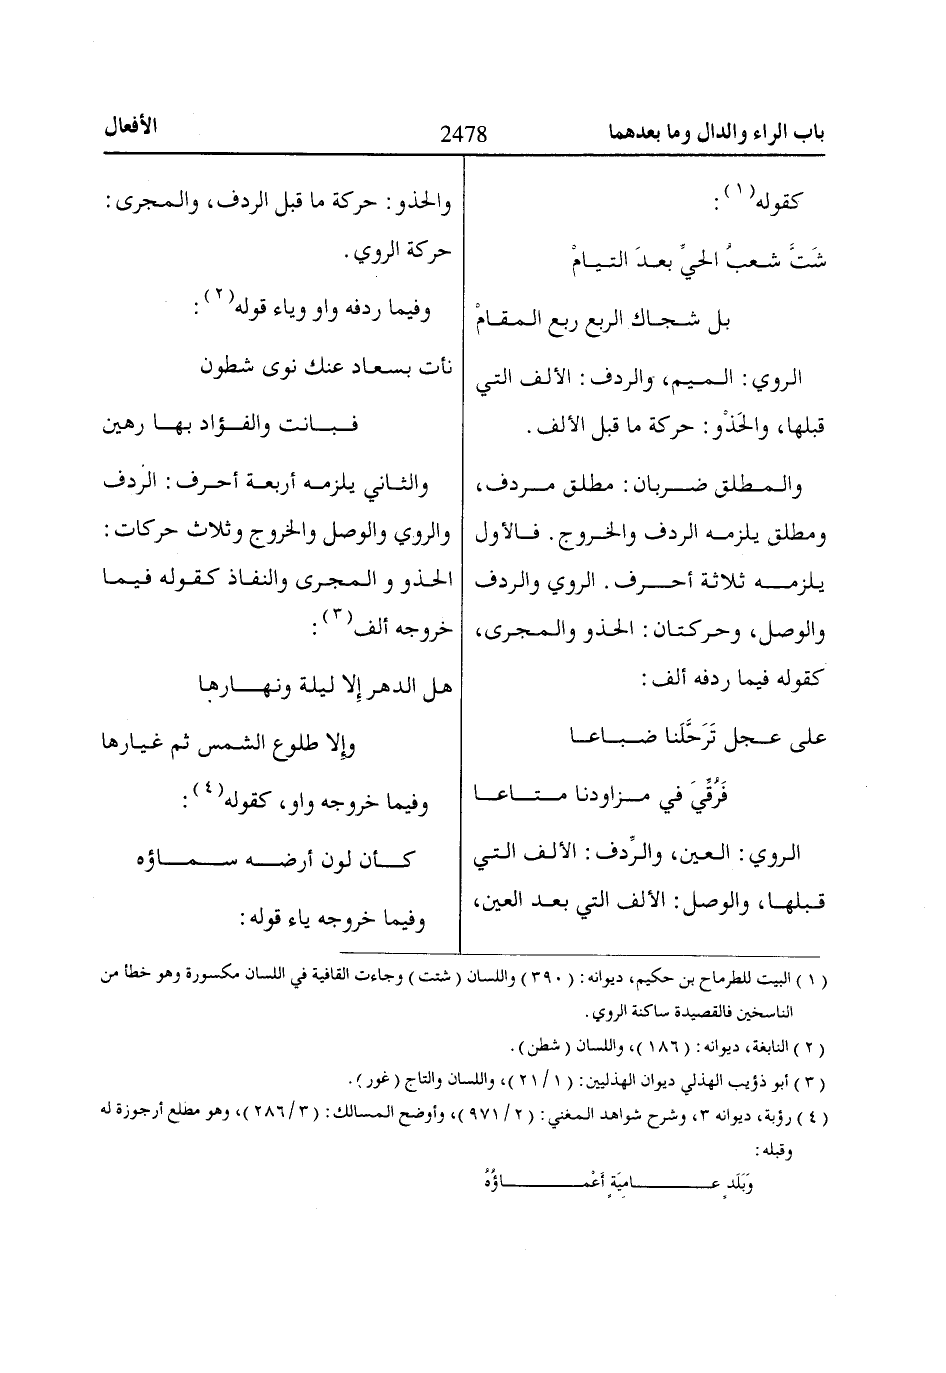 باب الراء والدال وما بعدهما 2478 الأفعال
كقوله(١):
شَتَّ شعبُ الحيِّ بعدَ التيامْ
بل شجاك الربع ربع المقامْ
الروي: الميم، والردف: الألف التي
قبلها، والحَذْو: حركة ما قبل الألف.
والمطلق ضربان: مطلق مردف،
ومطلق يلزمه الردف والخروج. فالأول
يلزمه ثلاثة أحرف. الروي والردف
والوصل، وحركتان: الحذو والمجرى،
كقوله فيما ردفه ألف:
على عجل تَرَحَّلَنا ضباعا
فَرُقِّيَ في مزاودنا متاعا
الروي: العين، والرِّدف: الألف التي
قبلها، والوصل: الألف التي بعد العين،
والحذو: حركة ما قبل الردف، والمجرى:
حركة الروي.
وفيما ردفه واو وياء قوله(٢):
نأت بسعاد عنك نوى شطون
فبانت والفؤاد بها رهين
والثاني يلزمه أربعة أحرف: الردف
والروي والوصل والخروج وثلاث حركات:
الحذو و المجرى والنفاذ كقوله فيما
خروجه ألف(٣):
هل الدهر إلا ليلة ونهارها
وإلا طلوع الشمس ثم غيارها
وفيما خروجه واو، كقوله(٤):
كأن لون أرضه سماؤه
وفيما خروجه ياء قوله:
(١) البيت للطرماح بن حكيم، ديوانه: (٣٩٠) واللسان (شتت) وجاءت القافية في اللسان مكسورة وهو خطأ من
الناسخين فالقصيدة ساكنة الروي.
(٢) النابغة، ديوانه: (١٨٦)، واللسان (شطن).
(٣) أبو ذؤيب الهذلي ديوان الهذليين: (٢١/١)، واللسان والتاج (غور).
(٤) رؤبة، ديوانه ٣، وشرح شواهد المغني: (٩٧١/٢)، وأوضح المسالك: (٢٨٦/٣)، وهو مطلع أرجوزة له
وقبله:
وَبَلَدٍ عاميَةٍ أَعْماؤُهُ